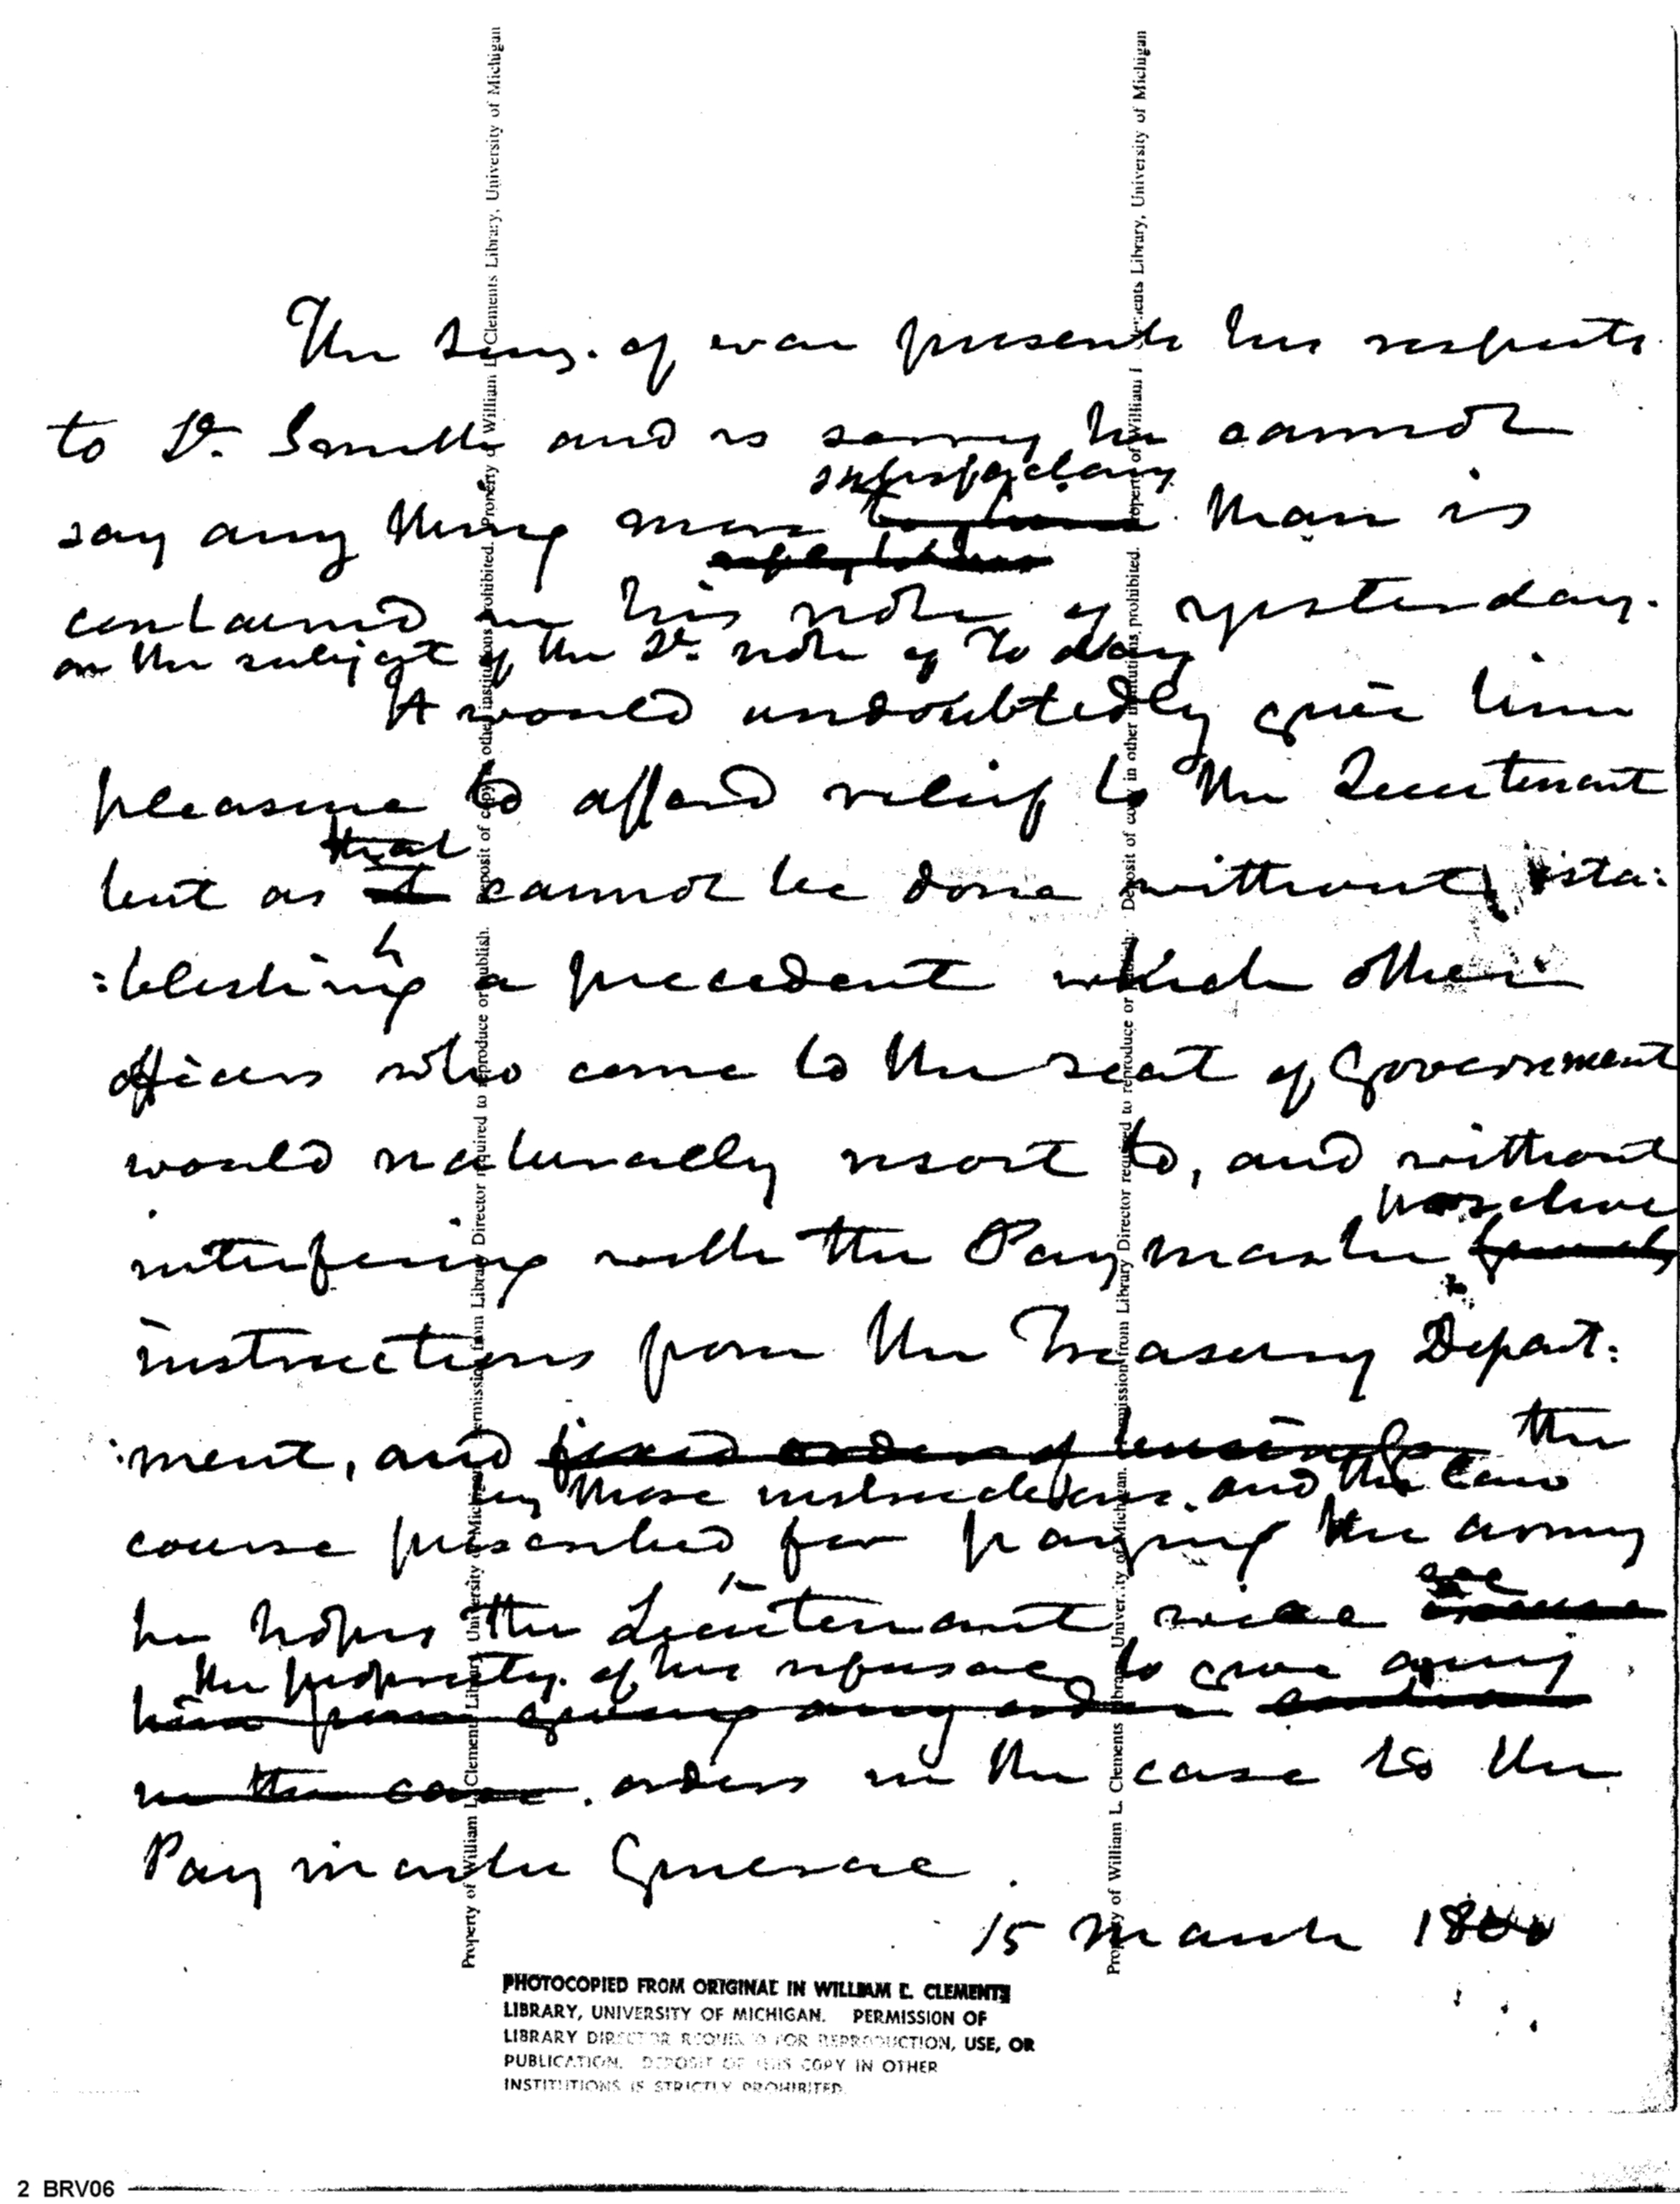 The Secy. of war presents his respects
to Lt. Smith and is sorry he cannot
satisfactory
say any thing more than is
contained in his note of yesterday.
on the subject of the Lt. note of to day
It would undoubtedly give him
pleasure to afford relief to the Lieutenant
that
but as it cannot be done without esta:
:blishing a precedent which other
officers who come to the seat of Government
would naturally resort to, and without
interfering with the Pay master
instructions from the Treasury Depart:
:ment, and fixed order of business the
by those instructions and the law
course prescribed for paying the army
see
he hopes the Lieutenant will excuse
the propriety of his refusal to give any
him from giving any order
in the case. orders in the case to the
Pay master General.
15 March 1800
PHOTOCOPIED FROM ORIGINAL IN WILLIAM L. CLEMENTS
LIBRARY, UNIVERSITY OF MICHIGAN. PERMISSION OF
LIBRARY DIRECTOR REQUIRED FOR REPRODUCTION, USE, OR
PUBLICATION. DEPOSIT OF THIS COPY IN OTHER
INSTITUTIONS IS STRICTLY PROHIBITED.
Property of William L. Clements Library, University of Michigan. Permission from Library Director required to reproduce or publish. Deposit of copy in other institutions prohibited. Property of William L. Clements Library, University of Michigan
Property of William L. Clements Library, University of Michigan. Permission from Library Director required to reproduce or publish. Deposit of copy in other institutions prohibited. Property of William L. Clements Library, University of Michigan
2 BRV06